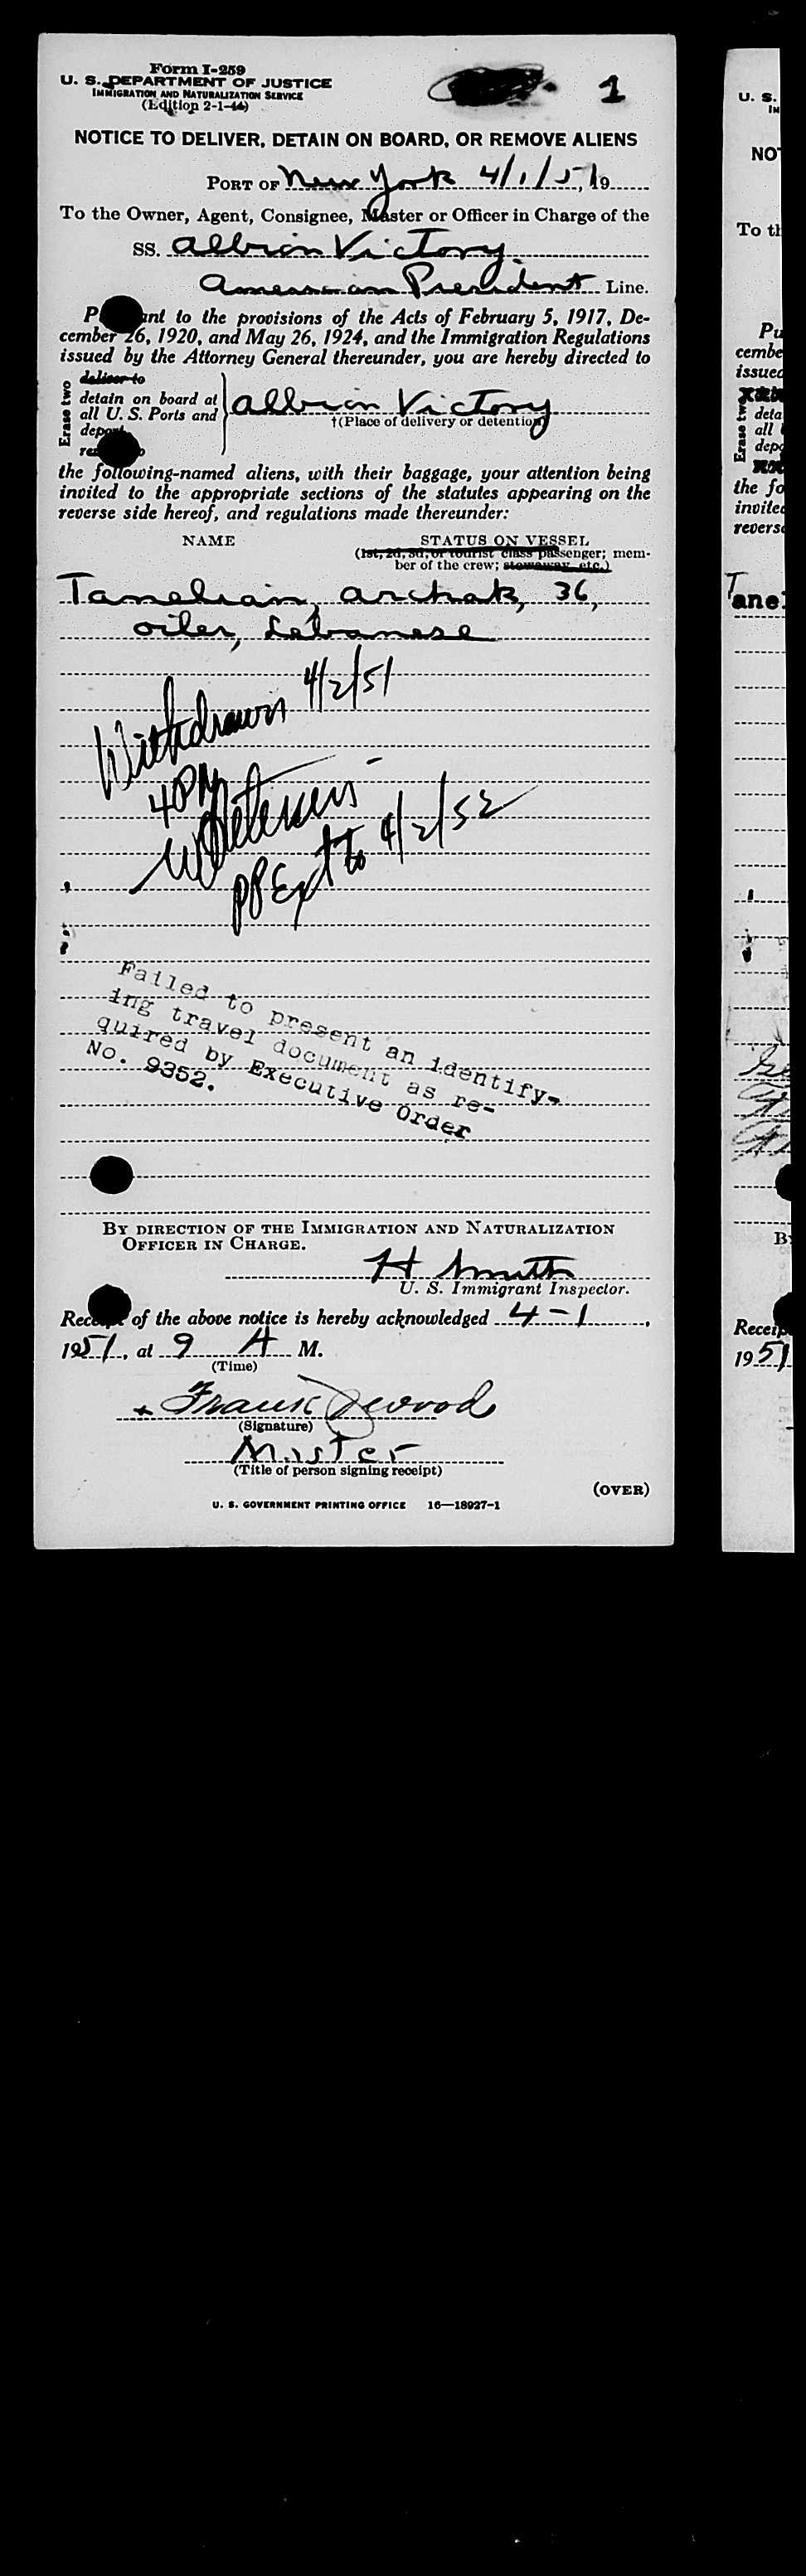 Form I-259
U. S. DEPARTMENT OF JUSTICE
IMMIGRATION AND NATURALIZATION SERVICE
(Edition 2-1-44)
1
NOTICE TO DELIVER, DETAIN ON BOARD, OR REMOVE ALIENS
PORT OF New York 4/1/51, 19
To the Owner, Agent, Consignee, Master or Officer in Charge of the
SS. Albion Victory
American President Line.
P ant to the provisions of the Acts of February 5, 1917, De-
cember 26, 1920, and May 26, 1924, and the Immigration Regulations
issued by the Attorney General thereunder, you are hereby directed to
Erase two
deliver to
detain on board at
all U. S. Ports and
deport
Albion Victory
†(Place of delivery or detention)
the following-named aliens, with their baggage, your attention being
invited to the appropriate sections of the statutes appearing on the
reverse side hereof, and regulations made thereunder:
NAME STATUS ON VESSEL
(1st, 2d, 3d, or tourist class passenger; mem-
ber of the crew; stowaway, etc.)
Tanelian, Archak, 36,
oiler, Lebanese
Withdrawn 4/2/51
4 PM
PP Ext to 4/2/52
Failed to present an identify-
ing travel document as re-
quired by Executive Order
No. 9352.
BY DIRECTION OF THE IMMIGRATION AND NATURALIZATION
OFFICER IN CHARGE.
H Smith
U. S. Immigrant Inspector.
Receipt of the above notice is hereby acknowledged 4-1,
1951, at 9 A M.
(Time)
Frank Dwood
(Signature)
Master
(Title of person signing receipt)
(OVER)
U. S. GOVERNMENT PRINTING OFFICE 16—18927-1
U. S.
NO
To th
Pu
cembe
issued
Erase two
deta
all
depo
the fo
invited
reverse
Tane
B
Receip
1951